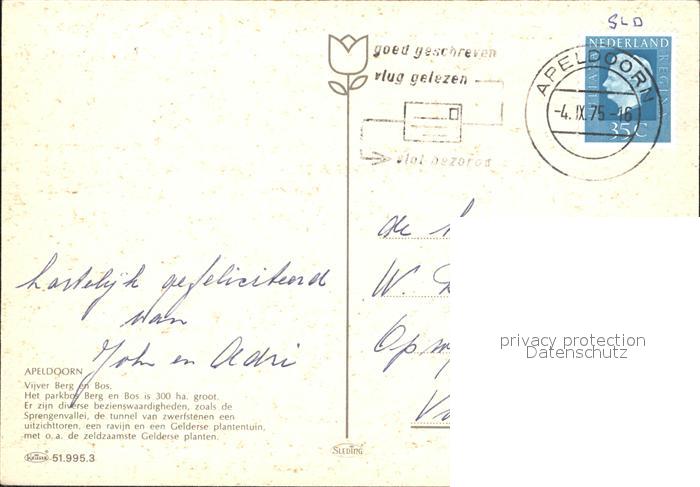 SLD
goed geschreven
vlug gelezen
vlot bezorgd
APELDOORN
-4. IX. 75 -16
NEDERLAND
35 C
hartelijk gefeliciteerd
van
John en Adri
de
W.
privacy protection
Datenschutz
APELDOORN
Vijver Berg en Bos.
Het parkbos Berg en Bos is 300 ha. groot.
Er zijn diverse bezienswaardigheden, zoals de
Sprengenvallei, de tunnel van zwerfstenen een
uitzichttoren, een ravijn en een Gelderse plantentuin,
met o.a. de zeldzaamste Gelderse planten.
51.995.3
SLEDING